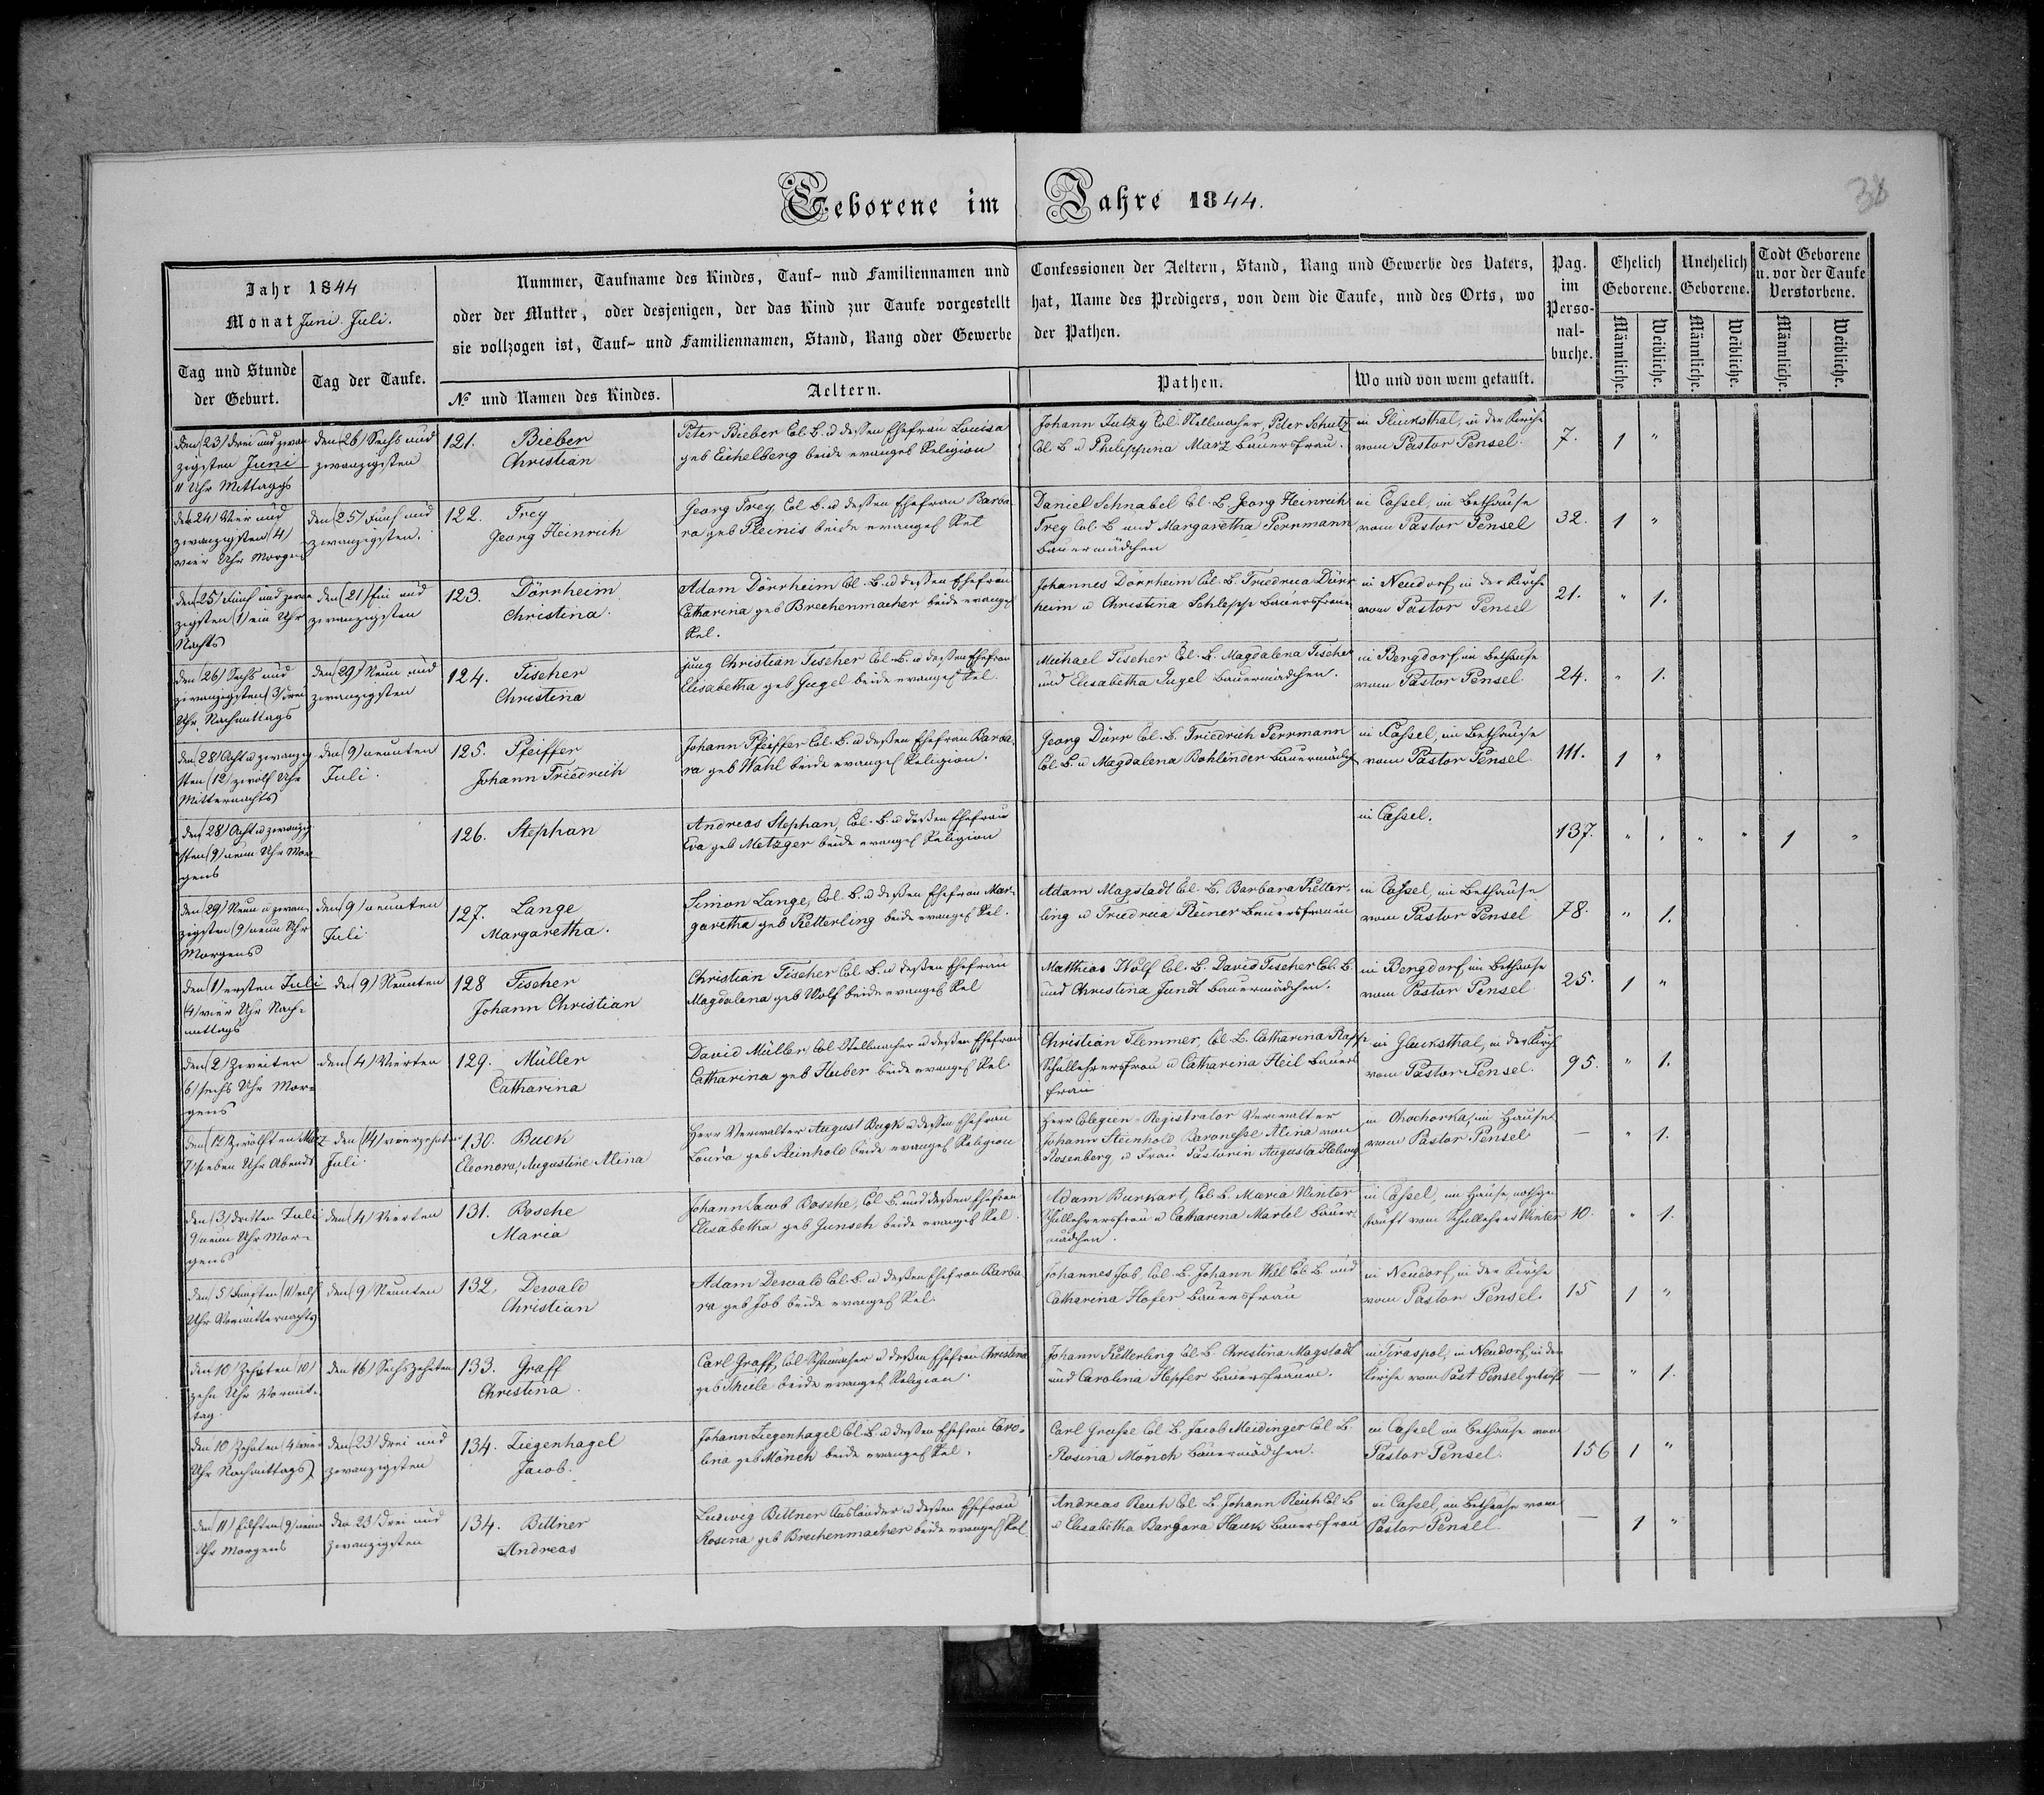 Geborene im Jahre 1844.
38
Jahr 1844
Monat Juni. Juli.
Tag und Stunde der Geburt.
Tag der Taufe.
Nummer, Taufname des Kindes, Tauf- und Familiennamen und Confessionen der Aeltern, Stand, Rang und Gewerbe des Vaters,
oder der Mutter, oder desjenigen, der das Kind zur Taufe vorgestellt hat, Name des Predigers, von dem die Taufe, und des Orts, wo
sie vollzogen ist, Tauf- und Familiennamen, Stand, Rang oder Gewerbe der Pathen.
No und Namen des Kindes.
Aeltern.
Pathen.
Wo und von wem getauft.
Pag. im Perso-nal-buche.
Ehelich Geborene.
Unehelich Geborene.
Todt Geborene u. vor der Taufe Verstorbene.
Männliche. Weibliche. Männliche. Weibliche. Männliche. Weibliche.
den (23) drei und zwan
zigsten Juni
11 Uhr Mittags
den (26) Sechs und
zwanzigsten
121. Bieber
Christian
Peter Bieber Col. B. u deßen Ehefrau Louisa
geb Eichelberg beide evangel Religion
Johann Jutzy Col. Stellmacher, Peter Schutz
Col. B u Philippina Marz Bauersfrau.
in Glücksthal, in der Kirche
vom Pastor Pensel
7. 1 "
den 24) Vier und
zwanzigsten (4)
vier Uhr Morgens
den (25) Fünf und
zwanzigsten.
122. Frey
Georg Heinrich
Georg Frey, Col. B. u deßen Ehefrau Barba
ra geb Pleinis beide evangel Rel
Daniel Schnabel Col. B. Georg Heinrich
Frey Col. B und Margaretha Perrmann
Bauermädchen
in Cassel, im Bethause
vom Pastor Pensel
32. 1 "
den (25) Fünf und zwan
zigsten (1) ein Uhr
Nachts
den (21) Ein und
zwanzigsten
123. Dörrheim
Christina.
Adam Dörrheim Col. B. u deßen Ehefrau
Catharina geb Brechenmacher beide evangel
Rel.
Johannes Dörrheim Col. B. Friedrica Dörr
heim u Christina Schlepp Bauersfrauen
in Neudorf, in der Kirche
vom Pastor Pensel
21. " 1.
den (26) Sechs und
zwanzigsten (3) drei
Uhr Nachmittags
den (29) Neun und
zwanzigsten
124. Fischer
Christina
jung Christian Fischer Col. B. u deßen Ehefrau
Elisabetha geb Gugel beide evangel Rel.
Michael Fischer Col. B. Magdalena Fischer
und Elisabetha Gugel Bauermädchen.
in Bergdorf, im Bethause
vom Pastor Pensel
24. " 1.
den (28) Acht u zwanzig
sten (12) zwölf Uhr
Mitternachts
den (9) neunten
Juli.
125. Pfeiffer
Johann Friedrich
Johann Pfeiffer Col. B. u deßen Ehefrau Barba
ra geb Wahl beide evangel Religion.
Georg Dörr Col. B. Friedrich Perrmann
Col. B. u Magdalena Bohlinder Bauermädch
in Cassel, im Bethause
vom Pastor Pensel
111. 1 "
den (28) Acht u zwanzig
sten (9) neun Uhr Mor-
gens
126. Stephan
Andreas Stephan, Col. B. u deßen Ehefrau
Eva geb Metzger beide evangel Religion
in Cassel.
137. " " " " 1 "
den (29) Neun u zwan-
zigsten (9) neun Uhr
Morgens
den (9) neunten
Juli.
127. Lange
Margaretha.
Simon Lange, Col. B. u deßen Ehefrau Mar-
garetha geb Ketterling beide evangel Rel.
Adam Magstadt Col. B. Barbara Ketter-
ling u Friedrica Reiner Bauersfrauen
in Cassel, im Bethause
vom Pastor Pensel
78. " 1.
den (1) ersten Juli
(4) vier Uhr Nach-
mittags
den (9) Neunten
128 Fischer
Johann Christian
Christian Fischer Col. B. u deßen Ehefrau
Magdalena geb Wolf beide evangel Rel
Matthias Wolf Col. B. David Fischer Col. B.
und Christina Jundt Bauermädchen.
in Bergdorf, im Bethause
vom Pastor Pensel
25. 1 "
den (2) Zweiten
6) sechs Uhr Mor-
gens
den (4) Vierten
129. Müller
Catharina
David Müller, Col Stellmacher u deßen Ehefrau
Catharina geb Huber beide evangel Rel
Christian Flemmer, Col. B. Catharina Rapp
Schullehrersfrau u Catharina Heil Bauers
frau
in Glücksthal, in der Kirch
vom Pastor Pensel.
95. " 1.
den (12) Zwölften März
7) sieben Uhr Abends
den (14) vierzehnten
Juli.
130. Buck
Eleonora, Augustine Alina
Herr Verwalter August Bugk u deßen Ehefrau
Loura geb Reinhold beide evangel Religion
Herr Colegien-Registrator Verwalter
Johann Steinhold, Baronesse Alina von
Rosenberg, u Frau Pastorin Augusta Helwig
in Chochorka, im Hause
vom Pastor Pensel
— " 1.
den (3) dritten Juli
9) neun Uhr Mor-
gens
den (4) Vierten
131. Bosche
Maria
Johann Jacob Bosche, Col B. und deßen Ehefrau
Elisabetha geb Junsch beide evangel Rel.
Adam Burkart, Col. B. Maria Winter
Schullehrersfrau u Catharina Martel Bauer-
mädchen.
in Cassel, im Hause, nothge-
tauft vom Schullehrer Winter
10. " 1.
den (5) Fünften (11) eilf
Uhr Vormitternachts
den (9) Neunten
132, Dewald
Christian
Adam Dewald Col. B. u deßen Ehefrau Barba
ra geb Job beide evangel Rel.
Johannes Job, Col. B. Johann Will Col. B. und
Catharina Hofer Bauersfrau
in Neudorf, in der Kirche
vom Pastor Pensel.
15 1 "
den 10) Zehnten (10)
zehn Uhr Vormit-
tag
den 16) Sechszehnten
133. Graff
Christina.
Carl Graff, Col Schumacher u deßen Ehefrau Christina
geb Thiele beide evangel Religion.
Johann Ketterling Col. B. Christina Magstadt
und Carolina Hepfer Bauersfrauen.
in Tiraspol, in Neudorf, in der
Kirche vom Past Pensel getauft
— " 1.
den 10) Zehnten (4) vier
Uhr Nachmittags
den (23) drei und
zwanzigsten
134. Ziegenhagel
Jacob.
Johann Ziegenhagel Col. B. u deßen Ehefrau Caro-
lina geb Mönch beide evangel Rel.
Carl Grosse Col. B. Jacob Meidinger Col. B.
Rosina Mönch Bauermädchen.
in Cassel im Bethause vom
Pastor Pensel.
156 1 "
den (11) Eilften (9) neun
Uhr Morgens
den 23) drei und
zwanzigsten
134. Bittner
Andreas
Ludwig Bittner Ausländer u deßen Ehefrau
Rosina geb Brechenmacher beide evangel Rel.
Andreas Reuh Col. B. Johann Reich Col. B
u Elisabetha Barbara Hauk Bauersfrau
in Cassel, im Bethause vom
Pastor Pensel.
— 1 "